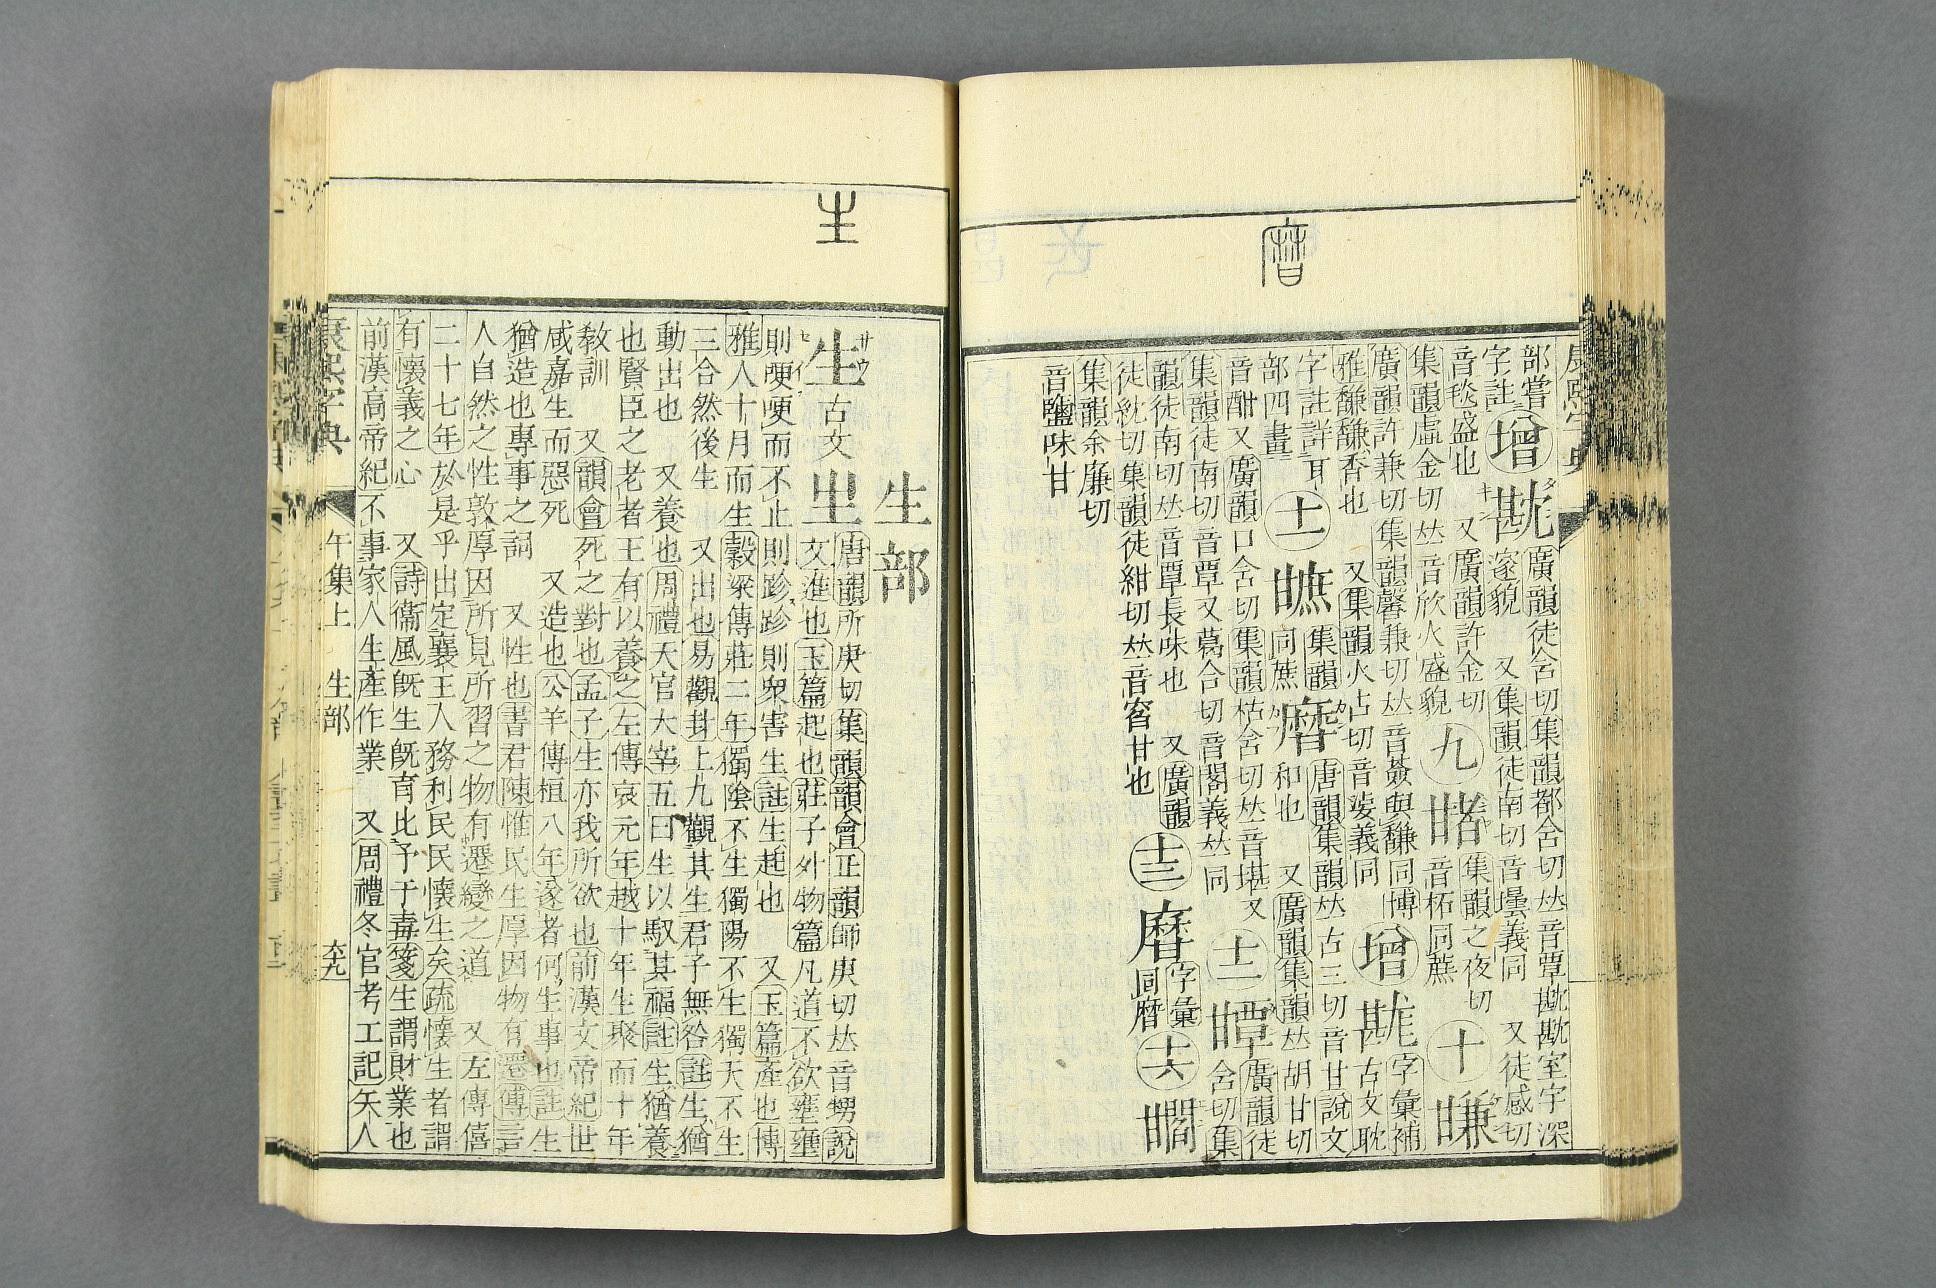 康熙字典
部嘗
字註
增
廣韻徒含切集韻都含切𠀤音覃室宇深
邃貌 又集韻徒南切音曇義同 又徒感切
音毯盛也 又廣韻許金切
集韻虛金切𠀤音欣火盛貌
九
集韻之夜切
音柘同蔗
十
廣韻許兼切集韻馨兼切𠀤音薟與馦同博
雅馦馦香也 又集韻火占切音義同
增
字彙補
古文耽
字註詳耳
部四畫
十一
集韻
同蔗
唐韻集韻𠀤古三切音甘說文
和也 又廣韻集韻𠀤胡甘切
音酣又廣韻口含切集韻枯含切𠀤音堪又
集韻徒南切音覃又葛合切音閤義𠀤同
十二
廣韻徒
含切集
韻徒南切𠀤音覃長味也 又廣韻
徒紞切集韻徒紺切𠀤音窞甘也
十三
字彙
同
十六
集韻余廉切
音鹽味甘
生
生部
サウ
セイ
生
古文
𤯓
唐韻所庚切集韻韻會正韻師庚切𠀤音甥說
文進也玉篇起也莊子外物篇凡道不欲壅壅
則哽哽而不止則跈跈則衆害生註生起也 又玉篇產也博
雅人十月而生穀梁傳莊二年獨陰不生獨陽不生獨天不生
三合然後生 又出也易觀卦上九觀其生君子無咎註生猶
動出也 又養也周禮天官大宰五曰生以馭其福註生猶養
也賢臣之老者王有以養之左傳哀元年越十年生聚而十年
敎訓 又韻會死之對也孟子生亦我所欲也前漢文帝紀世
咸嘉生而惡死 又造也公羊傳桓八年遂者何生事也註生
猶造也專事之詞 又性也書君陳惟民生厚因物有遷傳言
人自然之性敦厚因所見所習之物有遷變之道 又左傳僖
二十七年於是乎出定襄王入務利民民懷生矣疏懷生者謂
有懷義之心 又詩衞風旣生旣育比予于毒箋生謂財業也
前漢高帝紀不事家人生產作業 又周禮冬官考工記矢人
康熙字典 午集上 生部